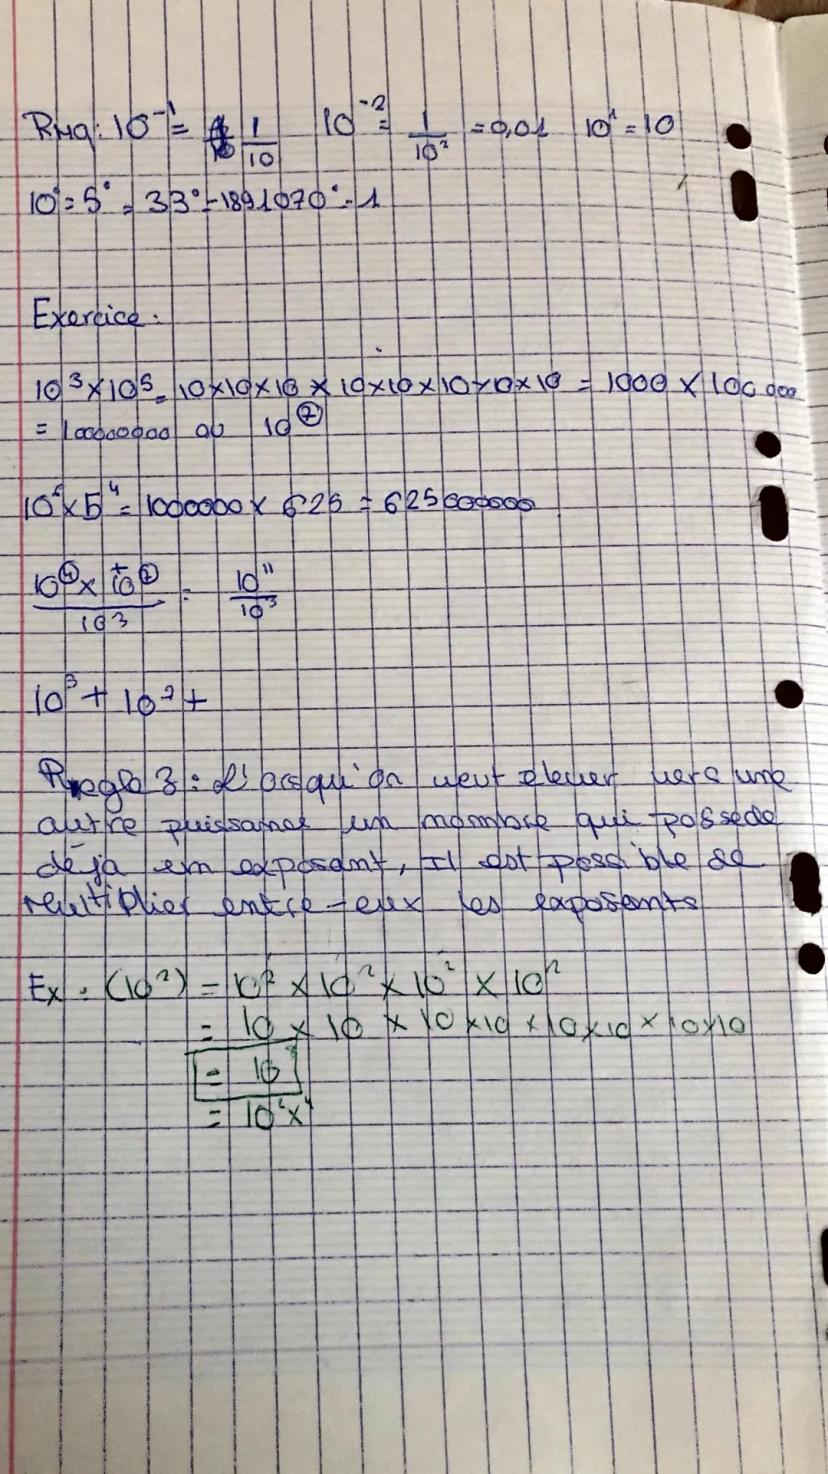 Rmq: 10⁻¹ = 1/10 10⁻² = 1/10² = 0,01 10¹ = 10
10° = 5° = 33° = -1891070° = 1
Exercice:
10³ × 10⁵ = 10×10×10 × 10×10×10×10×10 = 1000 × 100 000
= 100000000 ou 10
10⁶ × 5⁴ = 1000000 × 625 = 625000000
10 × 10 / 10³ = 10¹¹ / 10³
10³ + 10² +
Regle 3: L'orsqu'on veut elever vers une
autre puissance un nombre qui possede
déja un exposant, Il est possible de
multiplier entre-eux les exposants
Ex: (10²) = 10² × 10² × 10² × 10²
= 10 × 10 × 10 × 10 × 10 × 10 × 10 × 10
= 10⁸
= 10²ˣ⁴